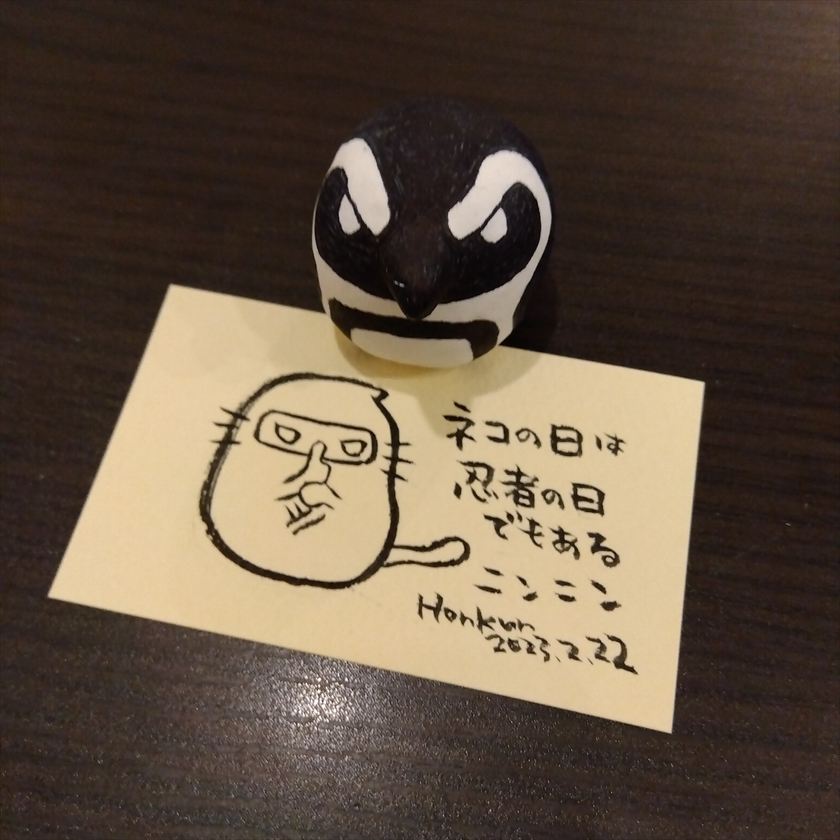 ネコの日は
忍者の日
でもある
ニンニン
Honkun
2023.2.22